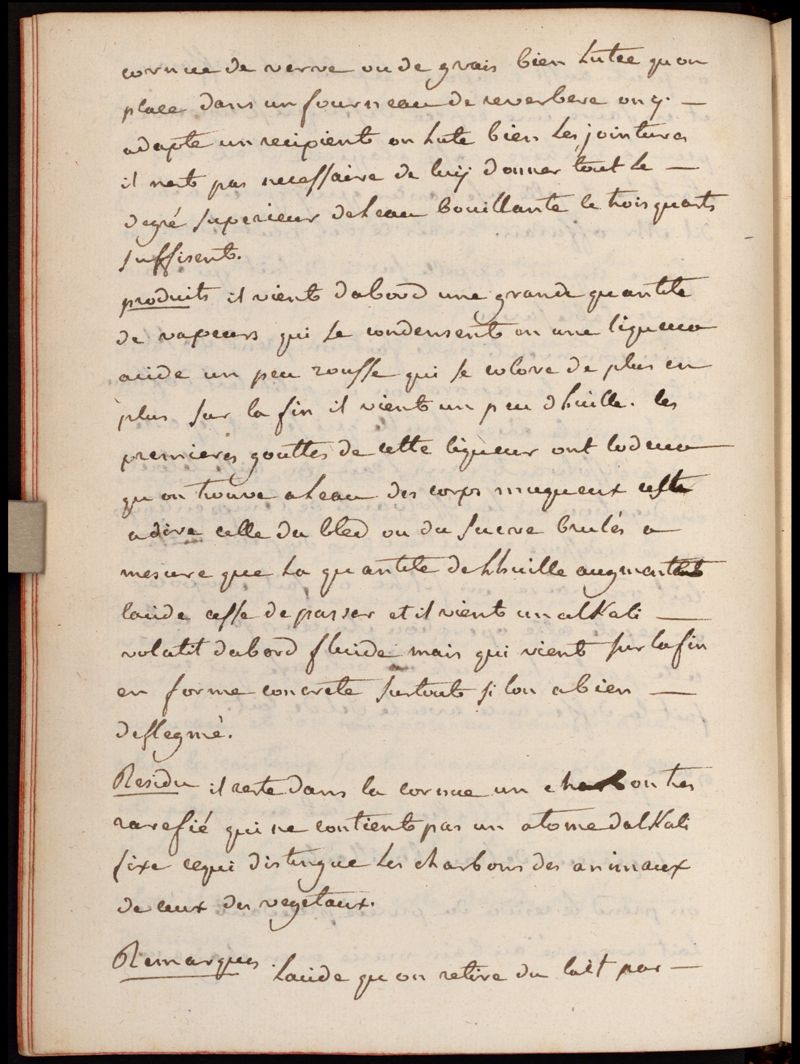 cornue de verre ou de grais bien lutee qu on
place dans un fourneau de reverbere on y —
adapte un recipient on lute bien les jointures
il nest pas necessaire de luy donner tout le —
degré superieur de leau bouillante le trois quarts
suffisent.
produits il vient dabord une grande quantite
de vapeurs qui se condensent en une liqueur
acide un peu rousse qui se colore de plus en
plus sur la fin il vient un peu dhuille. les
premieres gouttes de cette liqueur ont lodeur
qu on trouve a leau des corps muqueux cest
a dire celle du bled ou du sucre brulés a
mesure que la quantite de lhuille augmente
lacide cesse de passer et il vient un alkali —
volatil dabord fluide mais qui vient sur la fin
en forme concrete surtout si lon a bien —
deflegmé.
Residu il reste dans la cornue un charbon tres
rarefié qui ne contient pas un atome dalkali
fixe cequi distingue les charbons des animaux
de ceux des vegetaux.
Remarques. Lacide qu on retire du lait par —